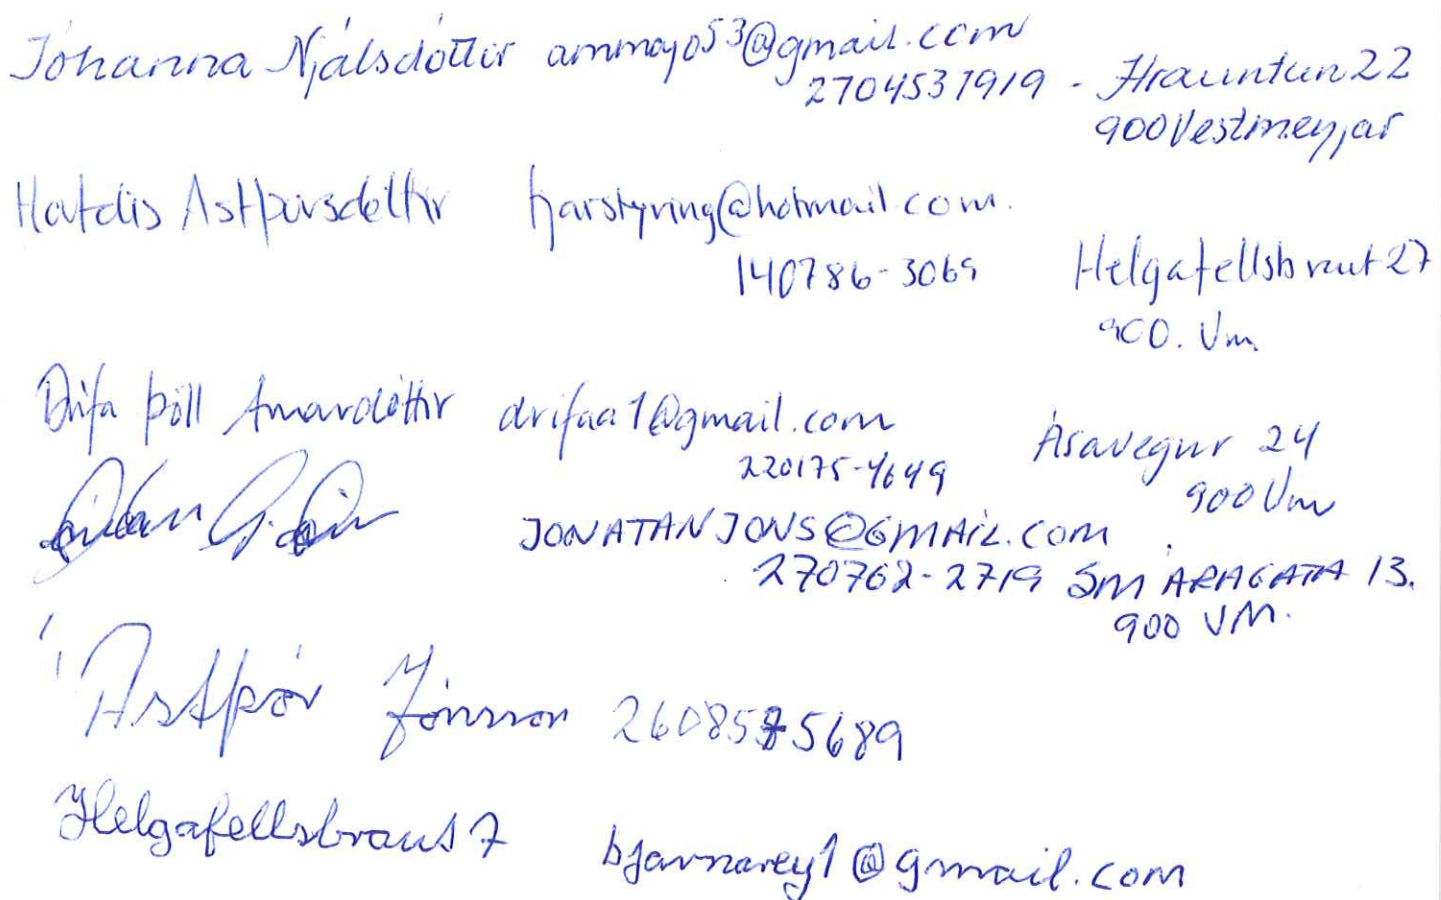 Jóhanna Njálsdóttir ammajo53@gmail.com
2704537919 - Hrauntún 22
900 Vestmeyjar
Hafdís Ástþórsdóttir fjarstyring@hotmail.com.
140786-3069 Helgafellsbraut 27
900. Vm
Drífa Þöll Arnardóttir drifaa1@gmail.com Ásavegur 24
220175-4649 900 Vm
JONATANJONS@GMAIL.COM
270762-2719 SMÁRAGATA 13.
900 VM.
Ástþór Jónsson
Helgafellsbraut 7 bjarnarey1@gmail.com